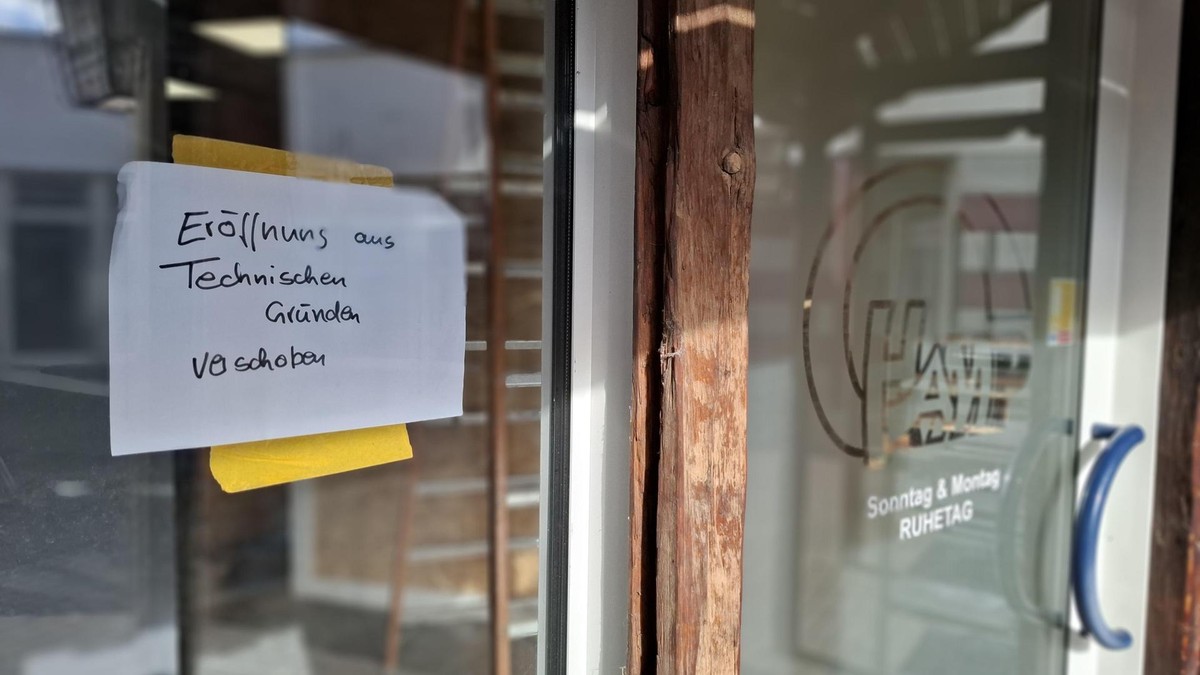 Eröffnung aus
Technischen
Gründen
verschoben
HAM
Sonntag & Montag -
RUHETAG